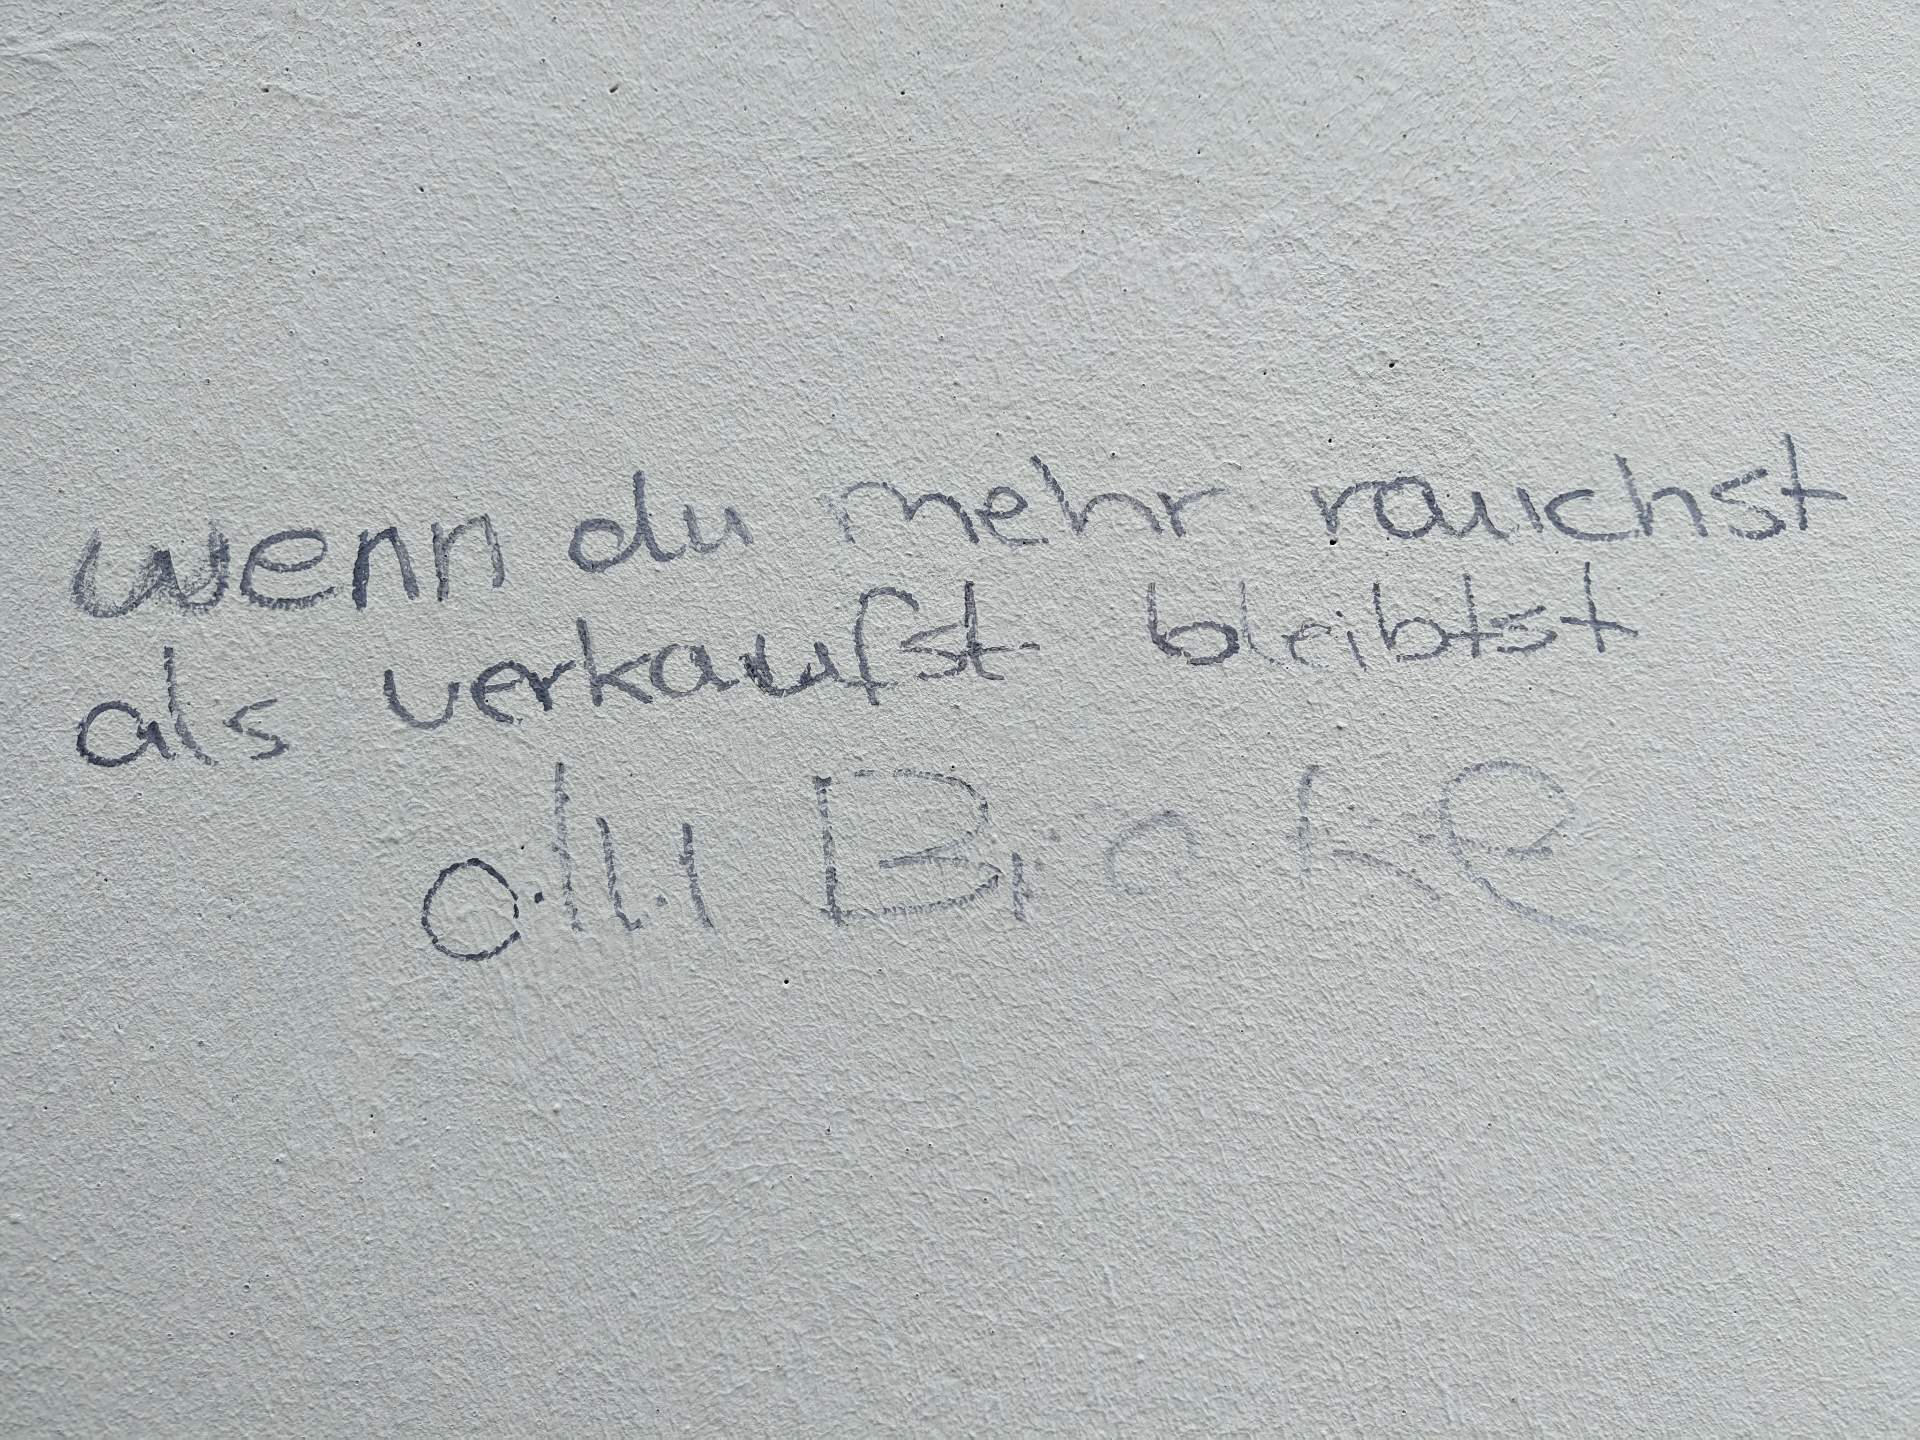 wenn du mehr rauchst
als verkaufst bleibtst
du Broke